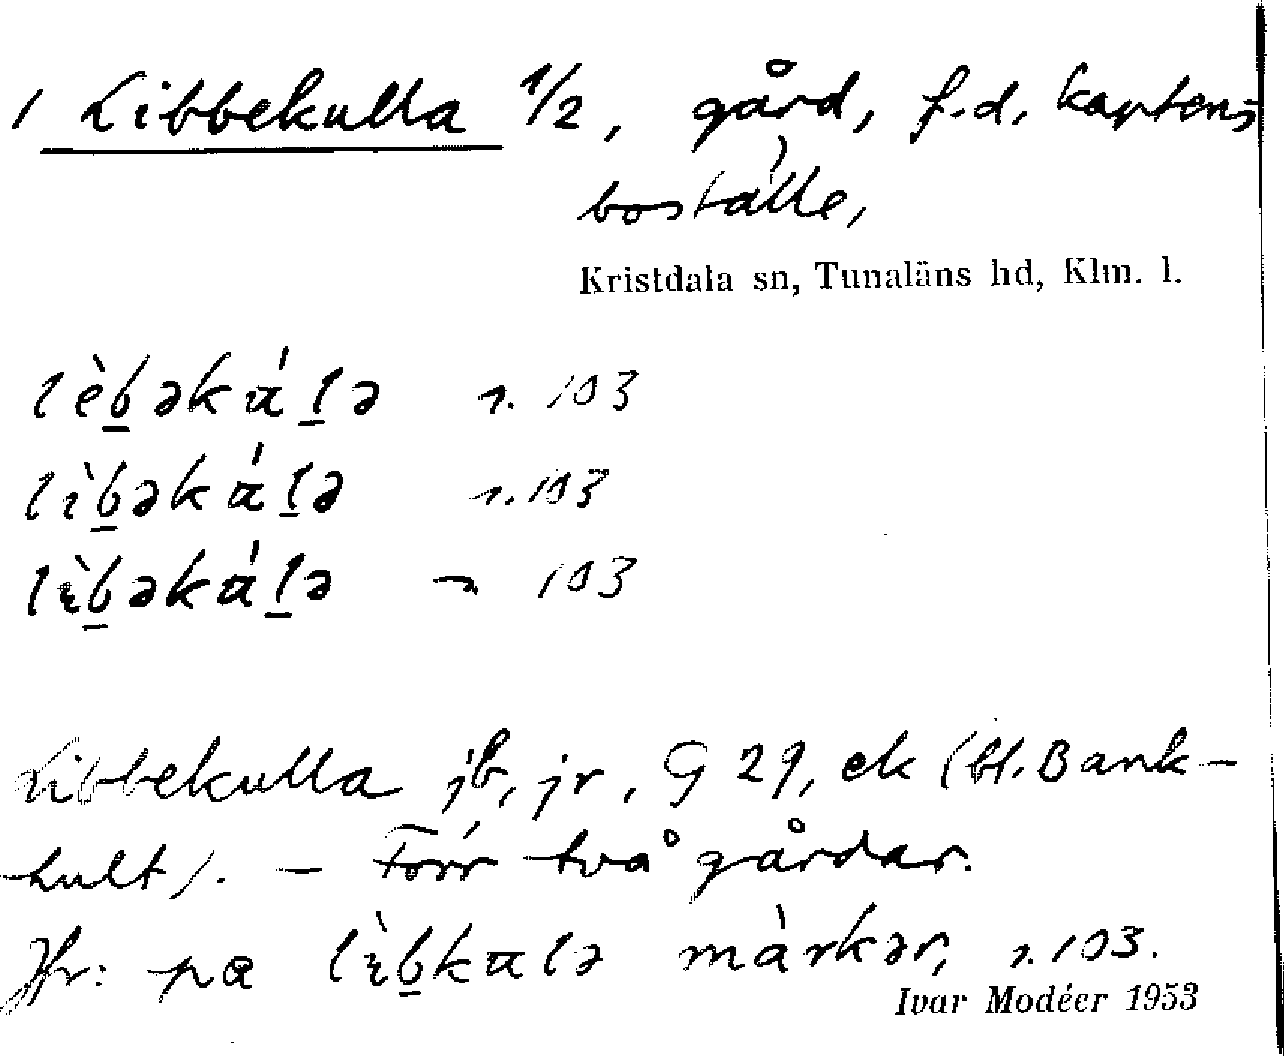 / Libbekulla 1/2, gård, f.d. kaptens-
boställe,
Kristdala sn, Tunaläns hd, Klm. l.
lèb̲əkál̲ə s. 103
lìb̲əkál̲ə s. 103
lìb̲əkál̲ə s. 103
Libbekulla jb, jr, G 29, ek (bl. Bank-
hult). – Förr två gårdar.
Jfr: pa lìb̲kalə màrkər, s. 103.
Ivar Modéer 1953